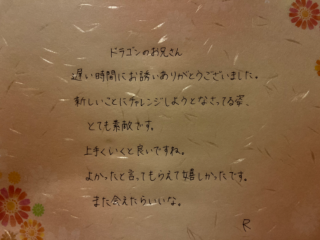 ドラゴンのお兄さん
遅い時間にお誘いありがとうございました。
新しいことにチャレンジしようとなさってる姿、
とても素敵です。
上手くいくと良いですね。
よかったと言ってもらえて嬉しかったです。
また会えたらいいな。
R